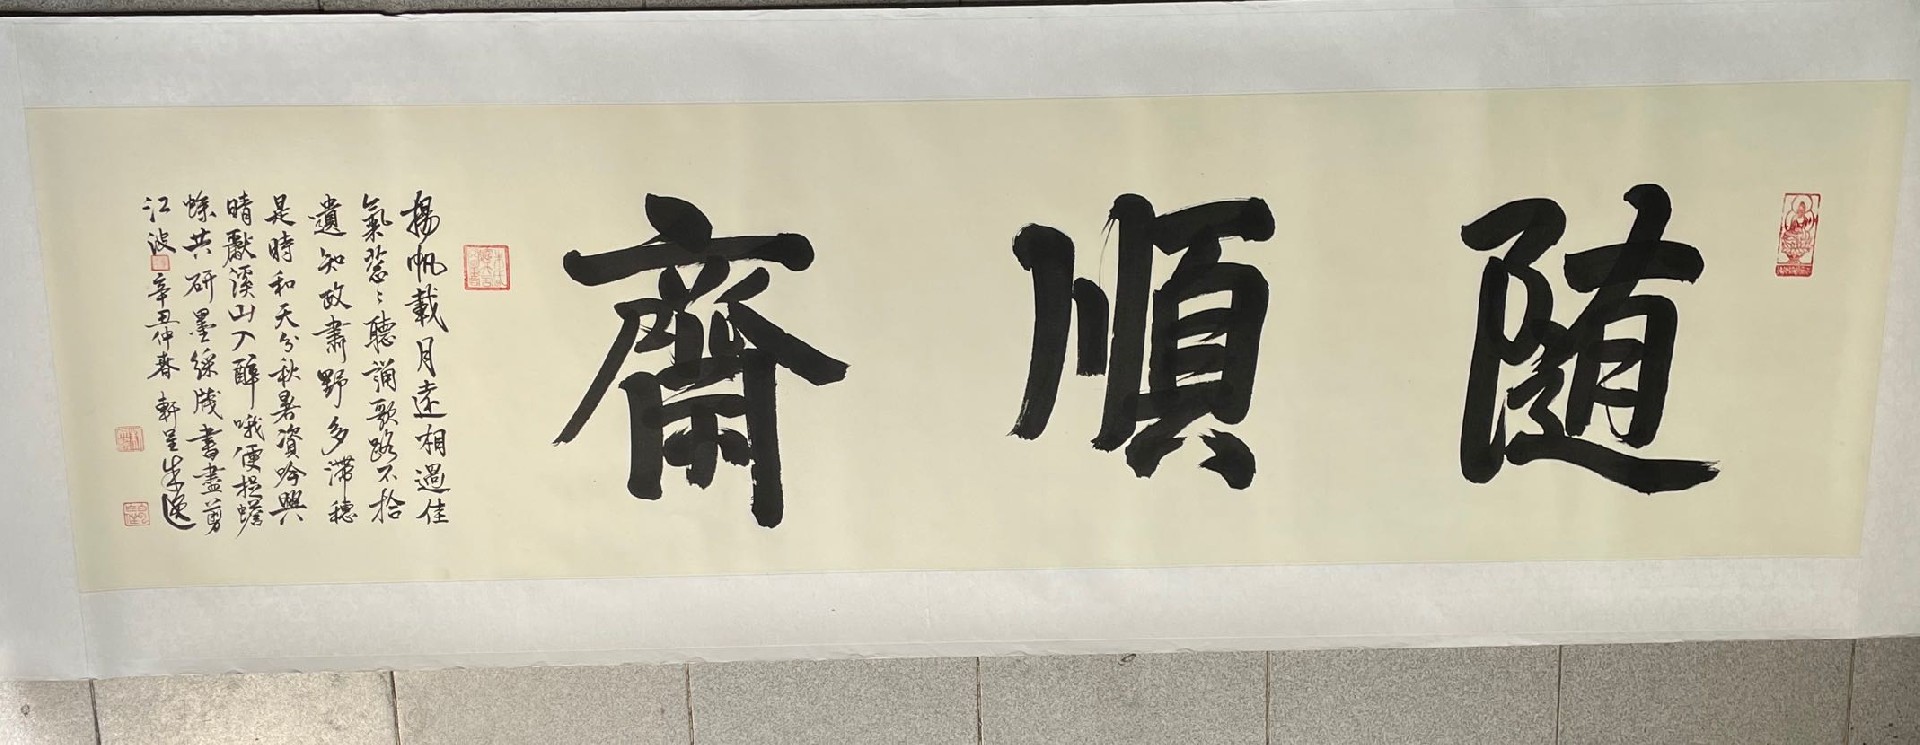 随順齋
揚帆載月遠相過佳
氣葱〻聽誦歌路不拾
遺知政肅野多滯穗
是時和天分秋暑資吟興
晴獻溪山入醉哦便捉蟾
蜍共研墨綵牋書盡剪
江波 辛丑仲春 軒